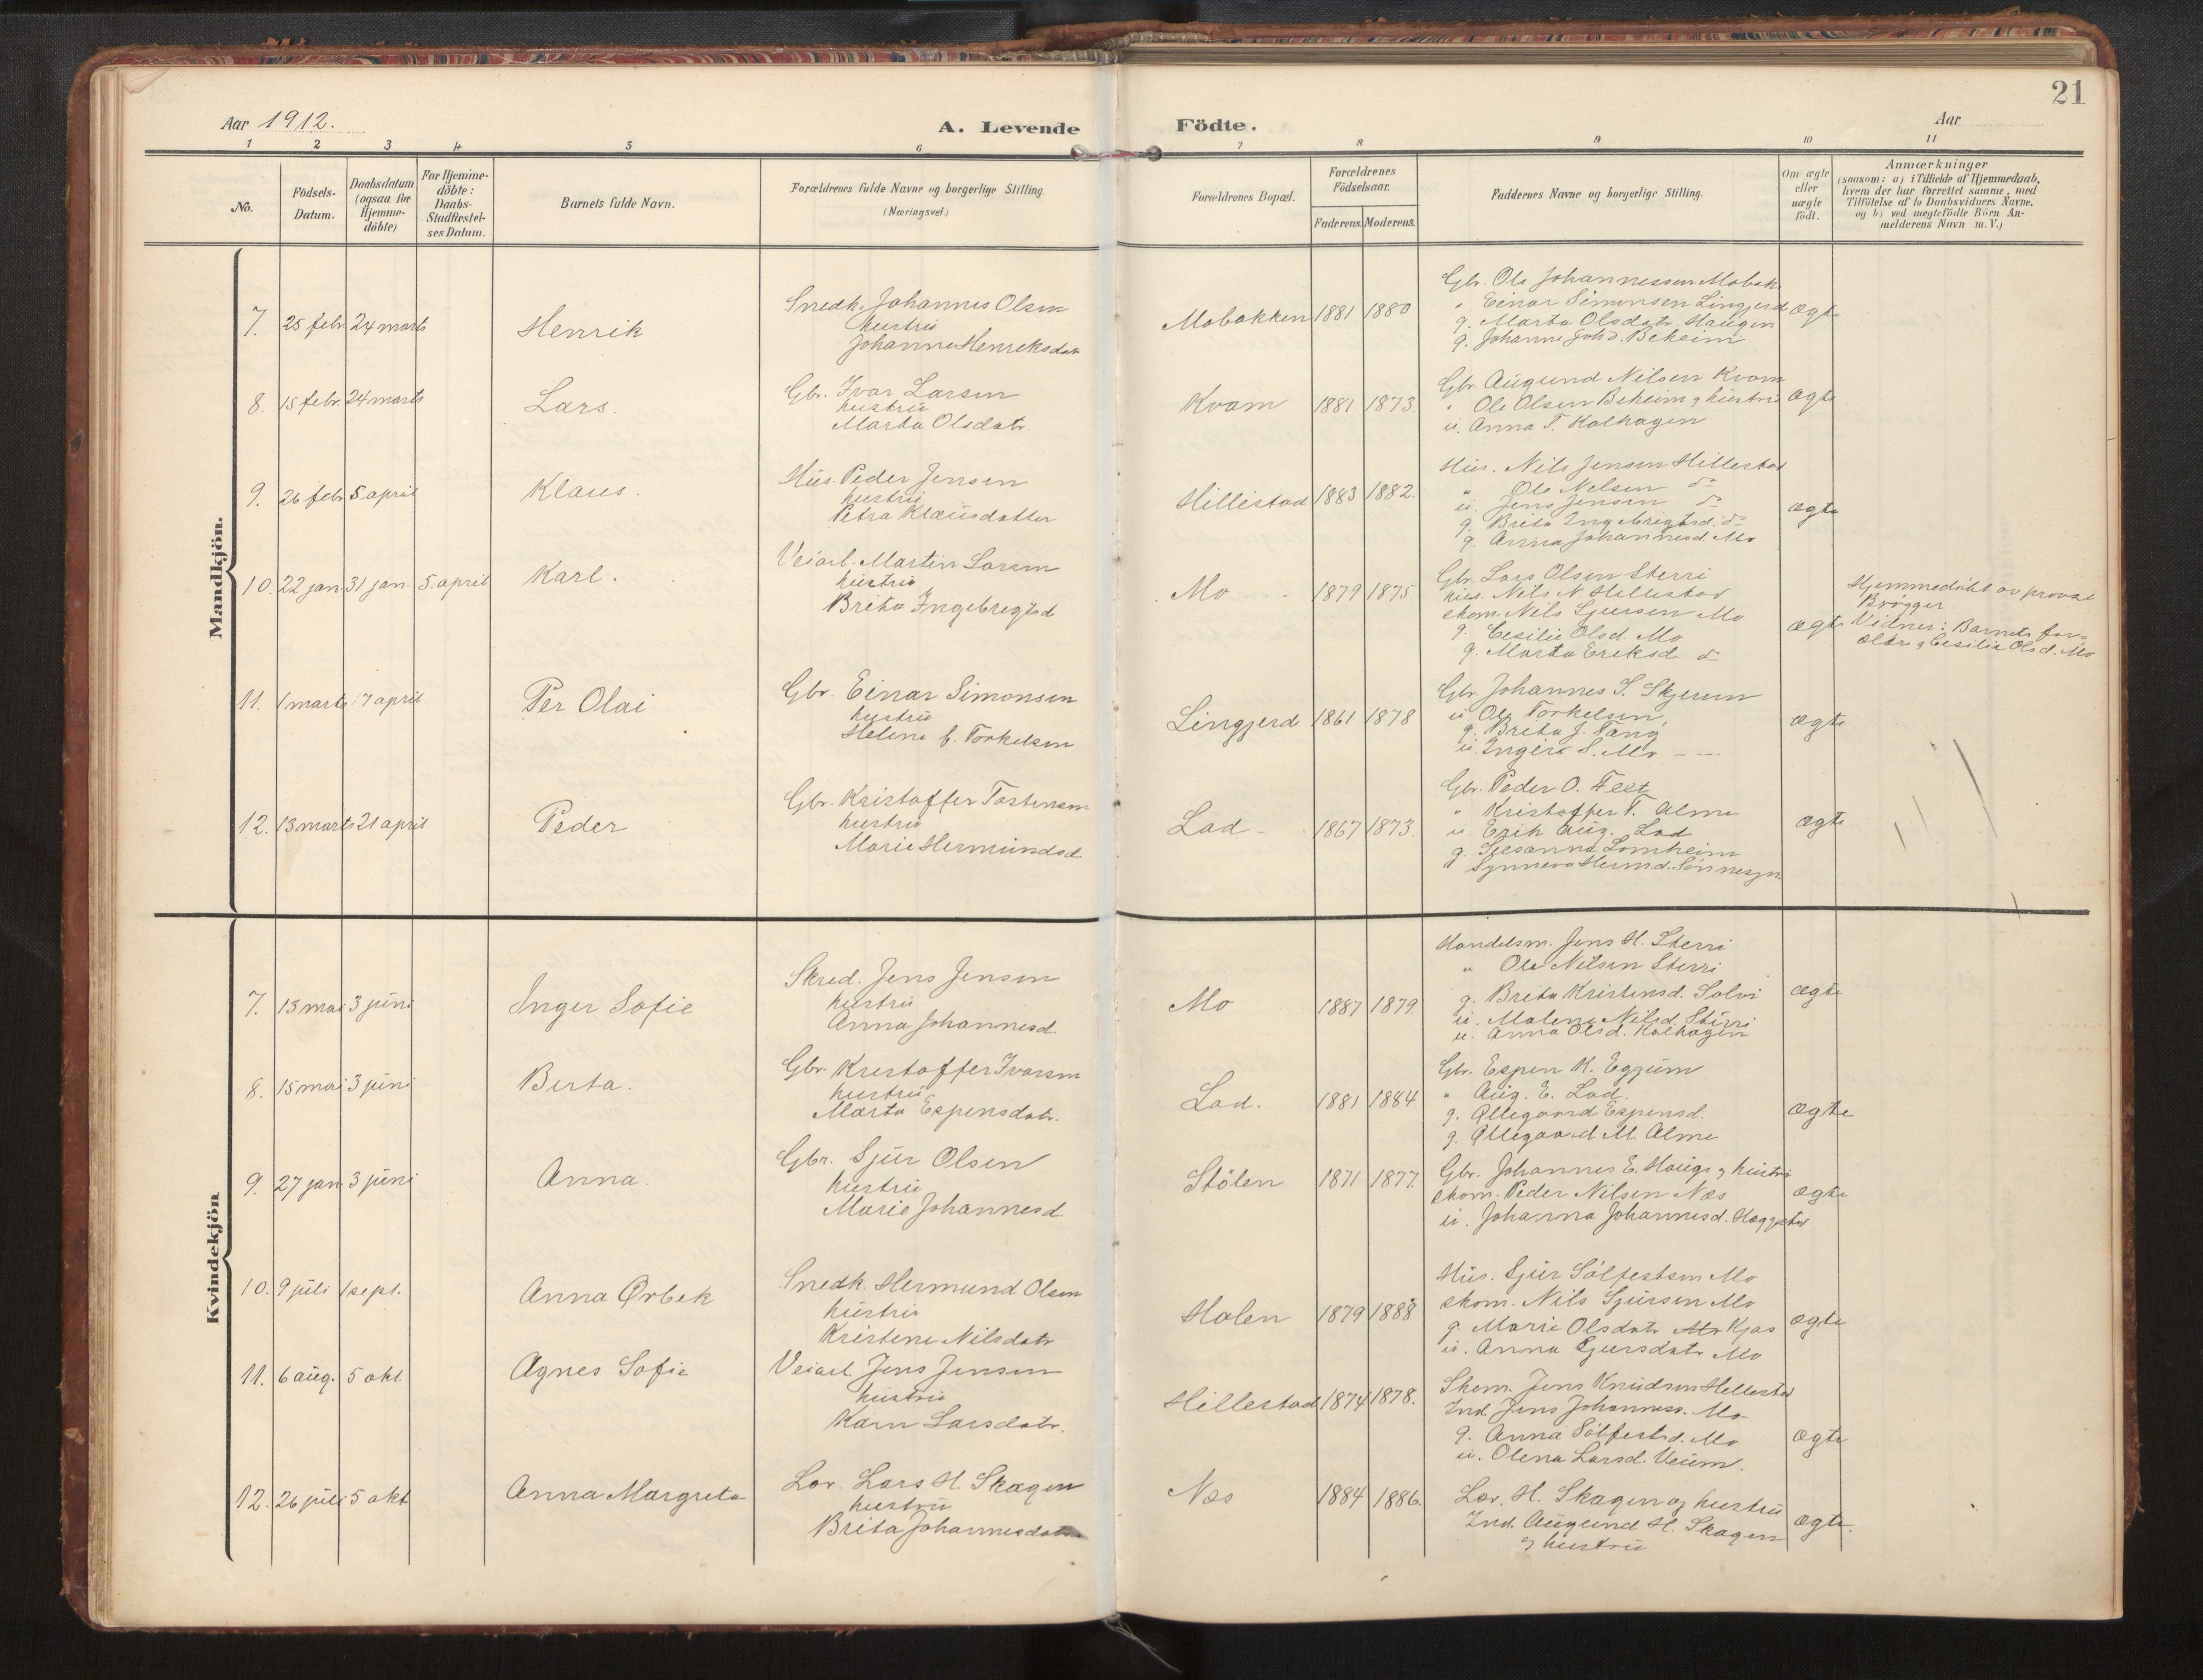 21
Aar 1912.
A. Levende Födte.
Aar
1 2 3 4 5 6 7 8 9 10 11
No.
Födsels-
Datum.
Daabsdatum
(ogsaa for
Hjemme-
döbte)
For Hjemme-
döbte:
Daabs-
Stadfæstel-
ses Datum.
Barnets fulde Navn.
Forældrenes fulde Navne og borgerlige Stilling.
(Næringsvei.)
Forældrenes Bopæl.
Forældrenes
Födselsaar.
Faderens. Moderens.
Faddernes Navne og borgerlige Stilling.
Om ægte
eller
uægte
födt.
Anmærkninger
(saasom: a) i Tilfælde af Hjemmedaab,
hvem der har forrettet samme, med
Tilföielse af to Daabsvidners Navne,
og b) ved uægtefödte Börn An-
melderens Navn m.V.)
Mandkjön.
7. 25 febr 24 marts
Henrik
Snedk. Johannes Olsen
hustru
Johanne Henriksdatr
Mobakken 1881 1880
Gbr. Ole Johannessen Mobak
" Einar Simonsen Lingjerd
g. Marta Olsdatr. Haugen
g. Johanne Joh.d. Beheim
ægte
8. 15 febr. 24 marts
Lars.
Gbr. Ivar Larsen
hustru
Marta Olsdatr.
Kvam 1881 1873.
Gbr. Augund Nilsen Kvam
" Ole Olsen Beheim og hustru
u. Anna T. Kalhagen
ægte
9. 26 febr 5 april
Klaus.
Hus. Peder Jensen
hustru
Petra Klausdatter
Hillestad 1883 1882.
Hus. Nils Jensen Hillestad
" Ole Nelsen do
u. Jens Jensen do
g. Brita Ingebregtsd. do
g. Anna Johannesd. Mo
ægte
10. 22 jan. 31 jan. 5. april
Karl.
Veiarb. Martin Larsen
hustru
Brita Ingebregtsd
Mo 1879 1875.
Gbr. Lars Olsen Sterri
hus. Nils N Hillestad
skom. Nils Sjursen Mo
g. Cesilie Olsd. Mo
g. Marta Eriksd. do
ægte
Hjemmedöbt av provst
Brögger.
Vidner: Barnets for-
ældre og Cesilie Olsd. Mo
11. 1 marts 7 april
Per Olai
Gbr. Einar Simonsen
hustru
Helene f. Torkelsen
Lingjerd 1861 1878
Gbr. Johannes S. Skjerum
u. Ole Torkelsen,
g. Brita J. Tang
u. Ingeri S. Mo
ægte
12. 13 marts 21 april
Peder
Gbr. Kristoffer Tostensen
hustru
Marie Hermundsd
Lad 1867 1873.
Gbr. Peder O. Feet
" Kristoffer T. Alme
u. Erik Aug. Lad
g. Susanna Lomheim
g. Synneva Herm.d. Sönnesyn
ægte
Kvindekjön
7. 13 mai 3 juni
Inger Sofie
Skred. Jens Jensen
hustru
Anna Johannesd.
Mo 1887 1879.
Handelsm. Jens H. Sterri
" Ole Nilsen Sterri
g. Brita Kristensd. Solvi
u. Malene Nilsd. Sterri
u. Anna Olsd. Kalhagen
ægte
8. 15 mai 3 juni
Berta.
Gbr. Kristoffer Ivarsen
hustru
Marta Espensdatr.
Lad. 1881 1884
Gbr. Espen K. Eggum
" Aug. E. Lad.
g. Øllegaard Espensd.
g. Øllegaard M. Alme
ægte
9. 27 jan. 3 juni
Anna.
Gbr. Sjur Olsen
hustru
Marie Johannesd.
Stölen 1871 1877.
Gbr. Johannes E. Hauge og hustru
skom. Peder Nilsen Næs
u. Johanna Johannesd. Heggestad
ægte
10. 9 juli 1 sept.
Anna Ørbek
Snedk. Hermund Olsen
hustru
Kristine Nilsdatr
Halen 1879 1888
Hus. Sjur Sölfestsen Mo
skom. Nils Sjursen Mo
g. Marie Olsdatr Mo Kjos
u. Anna Sjursdatr Mo
ægte
11. 6 aug. 5 okt.
Agnes Sofie
Veiarb. Jens Jensen
hustru
Karn Larsdatr.
Hillestad 1874 1878.
Skom. Jens Knudsen Hillestad
Ind. Jens Johanness. Mo
g. Anna Sölfestsd. Mo
u. Olena Larsd. Veum.
ægte
12. 26 juli 5 okt
Anna Margreta
Lær. Lars H. Skagen
hustru
Brita Johannesdatr
Næs 1884 1886.
Lær. H. Skagen og hustru
Ind. Augund H. Skagen
og hustru
ægte.